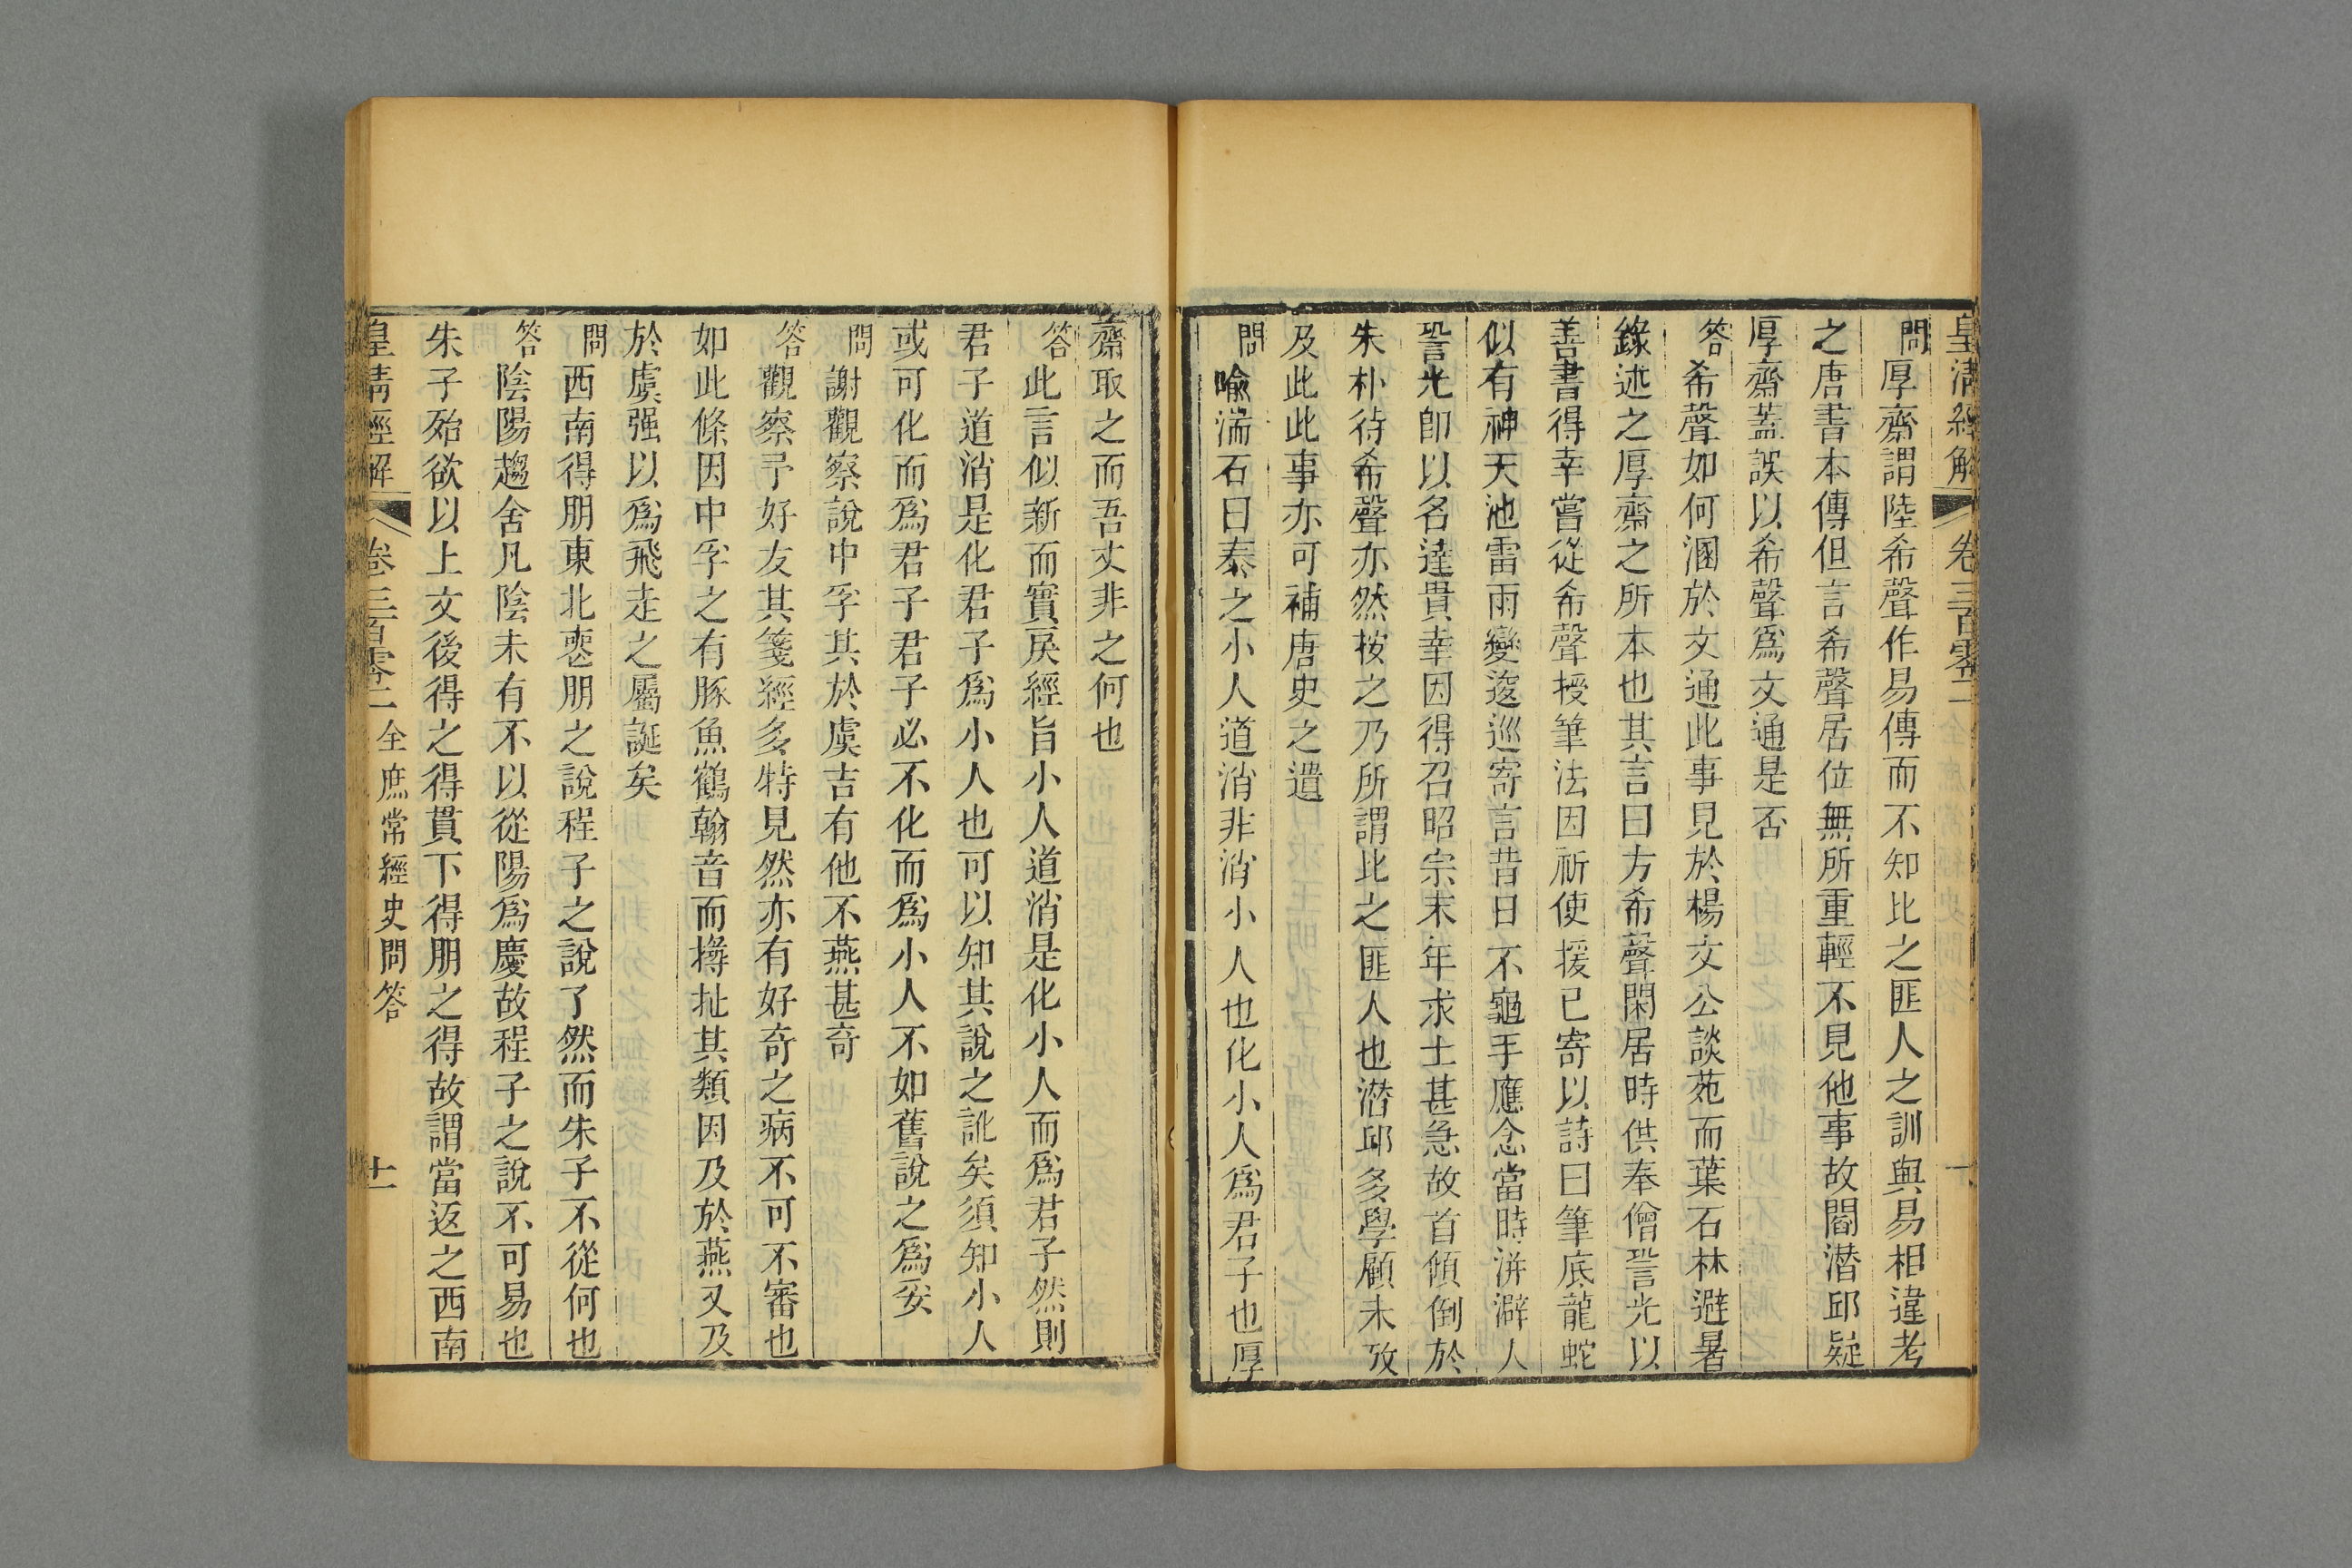 皇清經解 卷三百零二 十
問厚齋謂陸希聲作易傳而不知比之匪人之訓與易相違考
之唐書本傳但言希聲居位無所重輕不見他事故閻潛邱疑
厚齋蓋誤以希聲爲文通是否
答希聲如何溷於文通此事見於楊文公談苑而葉石林避暑
錄述之厚齋之所本也其言曰方希聲閑居時供奉僧㸁光以
善書得幸嘗從希聲授筆法因祈使援已寄以詩曰筆底龍蛇
似有神天池雷雨變逡巡寄言昔日不龜手應念當時洴澼人
㸁光卽以名達貴幸因得召昭宗末年求士甚急故首傾倒於
朱朴待希聲亦然按之乃所謂比之匪人也潛邱多學顧未攷
及此此事亦可補唐史之遺
問喩湍石曰泰之小人道消非消小人也化小人爲君子也厚
齋取之而吾丈非之何也
答此言似新而實戾經旨小人道消是化小人而爲君子然則
君子道消是化君子爲小人也可以知其說之訛矣須知小人
或可化而爲君子君子必不化而爲小人不如舊說之爲妥
問謝觀察說中孚其於虞吉有他不燕甚奇
答觀察予好友其箋經多特見然亦有好奇之病不可不審也
如此條因中孚之有豚魚鶴翰音而撏扯其類因及於燕又及
於虞强以爲飛走之屬誕矣
問西南得朋東北喪朋之說程子之說了然而朱子不從何也
答陰陽趨舍凡陰未有不以從陽爲慶故程子之說不可易也
朱子殆欲以上文後得之得貫下得朋之得故謂當返之西南
皇清經解 卷三百零二 全庶常經史問答 十一